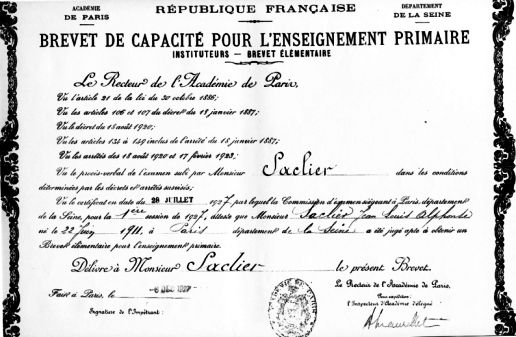 ACADÉMIE
DE PARIS
RÉPUBLIQUE FRANÇAISE
DÉPARTEMENT
DE LA SEINE
BREVET DE CAPACITÉ POUR L'ENSEIGNEMENT PRIMAIRE
INSTITUTEURS — BREVET ÉLÉMENTAIRE
Le Recteur de l'Académie de Paris,
Vu l'article 21 de la loi du 30 octobre 1886;
Vu les articles 106 et 107 du décret du 18 janvier 1887;
Vu le décret du 18 août 1920;
Vu les articles 134 à 149 inclus de l'arrêté du 18 janvier 1887;
Vu les arrêtés des 18 août 1920 et 17 février 1923;
Vu le procès-verbal de l'examen subi par Monsieur Saclier dans les conditions
déterminées par les décrets et arrêtés susvisés;
Vu le certificat en date du 28 JUILLET 1927 par lequel la Commission d'examen siégeant à Paris, département
de la Seine, pour la 1ère session de 1927, atteste que Monsieur Saclier Jean Louis Alphonse
né le 22 1911, à Paris département de la Seine a été jugé apte à obtenir un
Brevet élémentaire pour l'enseignement primaire.
Délivré à Monsieur Saclier le présent Brevet.
Fait à Paris, le -6 DEC 1927
Le Recteur de l'Académie de Paris,
Pour expédition:
l'Inspecteur d'Académie délégué
Signature de l'Impétrant:
ACADÉMIE DE PARIS